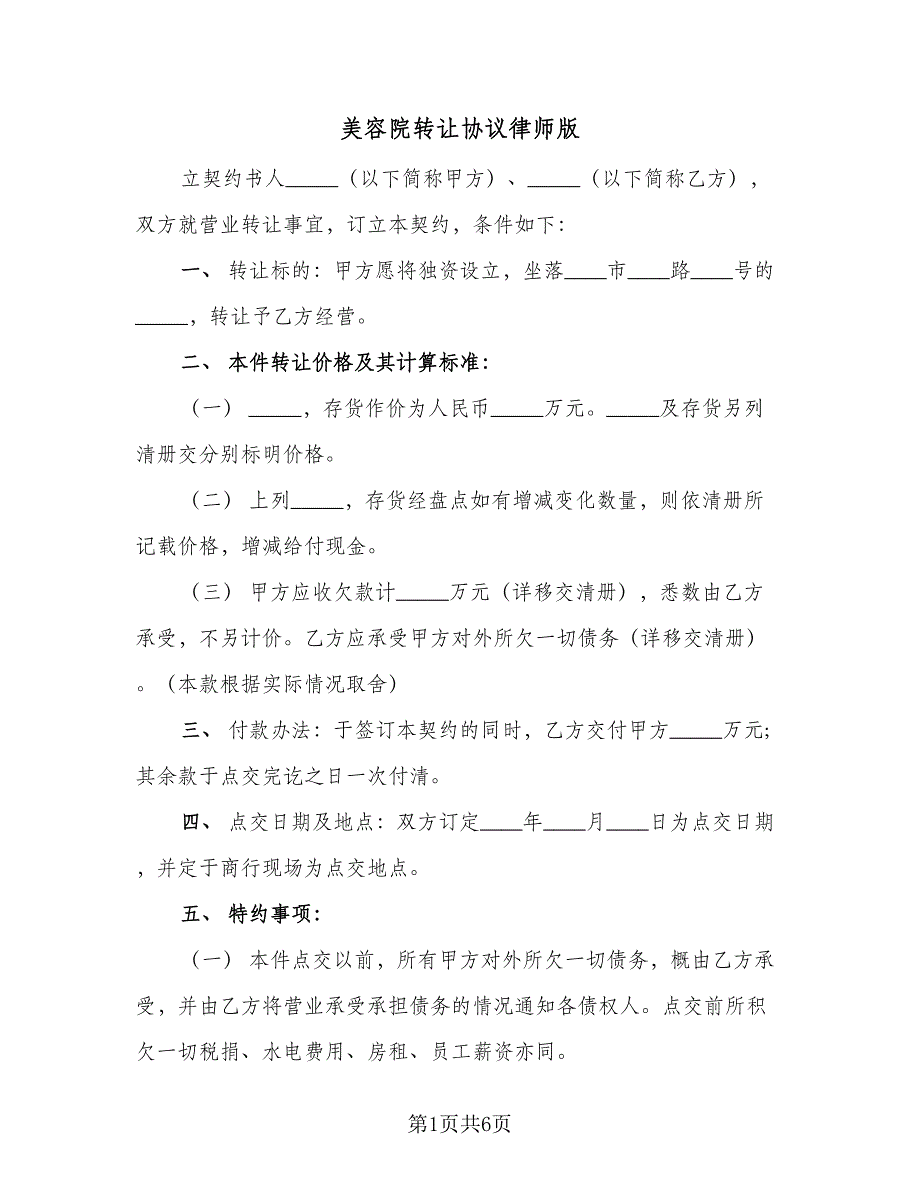 美容院转让协议律师版
立契约书人_____（以下简称甲方）、_____（以下简称乙方），
双方就营业转让事宜，订立本契约，条件如下：
一、 转让标的：甲方愿将独资设立，坐落____市____路____号的
_____，转让予乙方经营。
二、 本件转让价格及其计算标准：
（一） _____，存货作价为人民币_____万元。_____及存货另列
清册交分别标明价格。
（二） 上列_____，存货经盘点如有增减变化数量，则依清册所
记载价格，增减给付现金。
（三） 甲方应收欠款计_____万元（详移交清册），悉数由乙方
承受，不另计价。乙方应承受甲方对外所欠一切债务（详移交清册）
。（本款根据实际情况取舍）
三、 付款办法：于签订本契约的同时，乙方交付甲方_____万元;
其余款于点交完讫之日一次付清。
四、 点交日期及地点：双方订定____年____月____日为点交日期
，并定于商行现场为点交地点。
五、 特约事项：
（一） 本件点交以前，所有甲方对外所欠一切债务，概由乙方承
受，并由乙方将营业承受承担债务的情况通知各债权人。点交前所积
欠一切税捐、水电费用、房租、员工薪资亦同。
第1页共6页